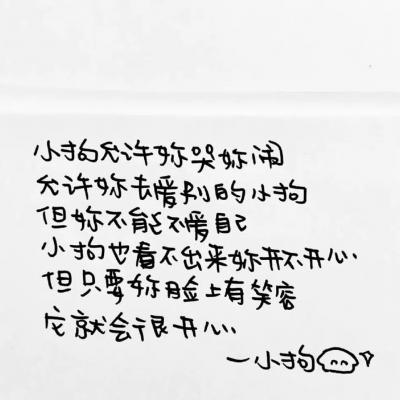 小狗允许妳哭妳闹
允许妳去爱别的小狗
但妳不能不爱自己
小狗也看不出来妳开不开心
但只要妳脸上有笑容
它就会很开心
—小狗